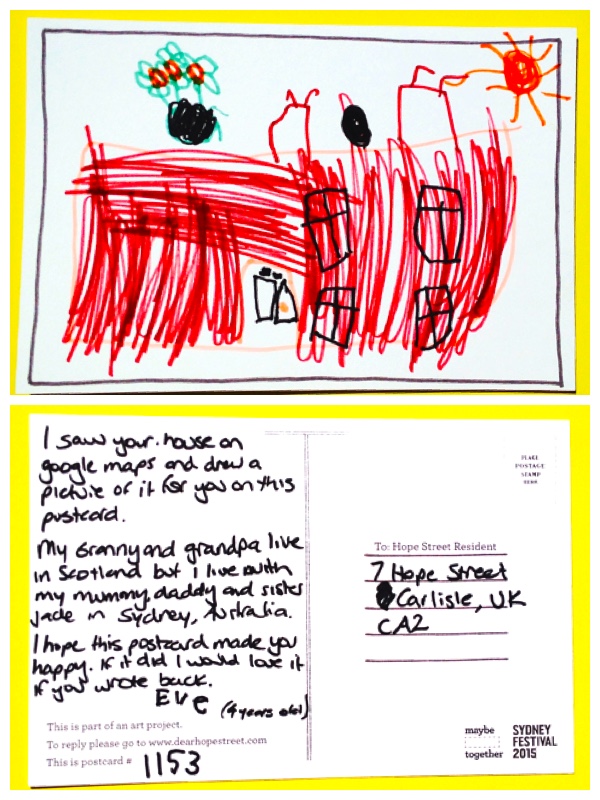 I saw your house on
google maps and drew a
picture of it for you on this
postcard.
My Granny and grandpa live
in Scotland but i live with
my mummy, daddy and sister
jade in Sydney, Australia.
I hope this postcard made you
happy. If it did I would love it
if you wrote back.
Eve (4 years old)
This is part of an art project.
To reply please go to www.dearhopestreet.com
This is postcard # 1153
PLACE
POSTAGE
STAMP
HERE
To: Hope Street Resident
7 Hope Street
Carlisle, UK
CA2
maybe
together
SYDNEY
FESTIVAL
2015